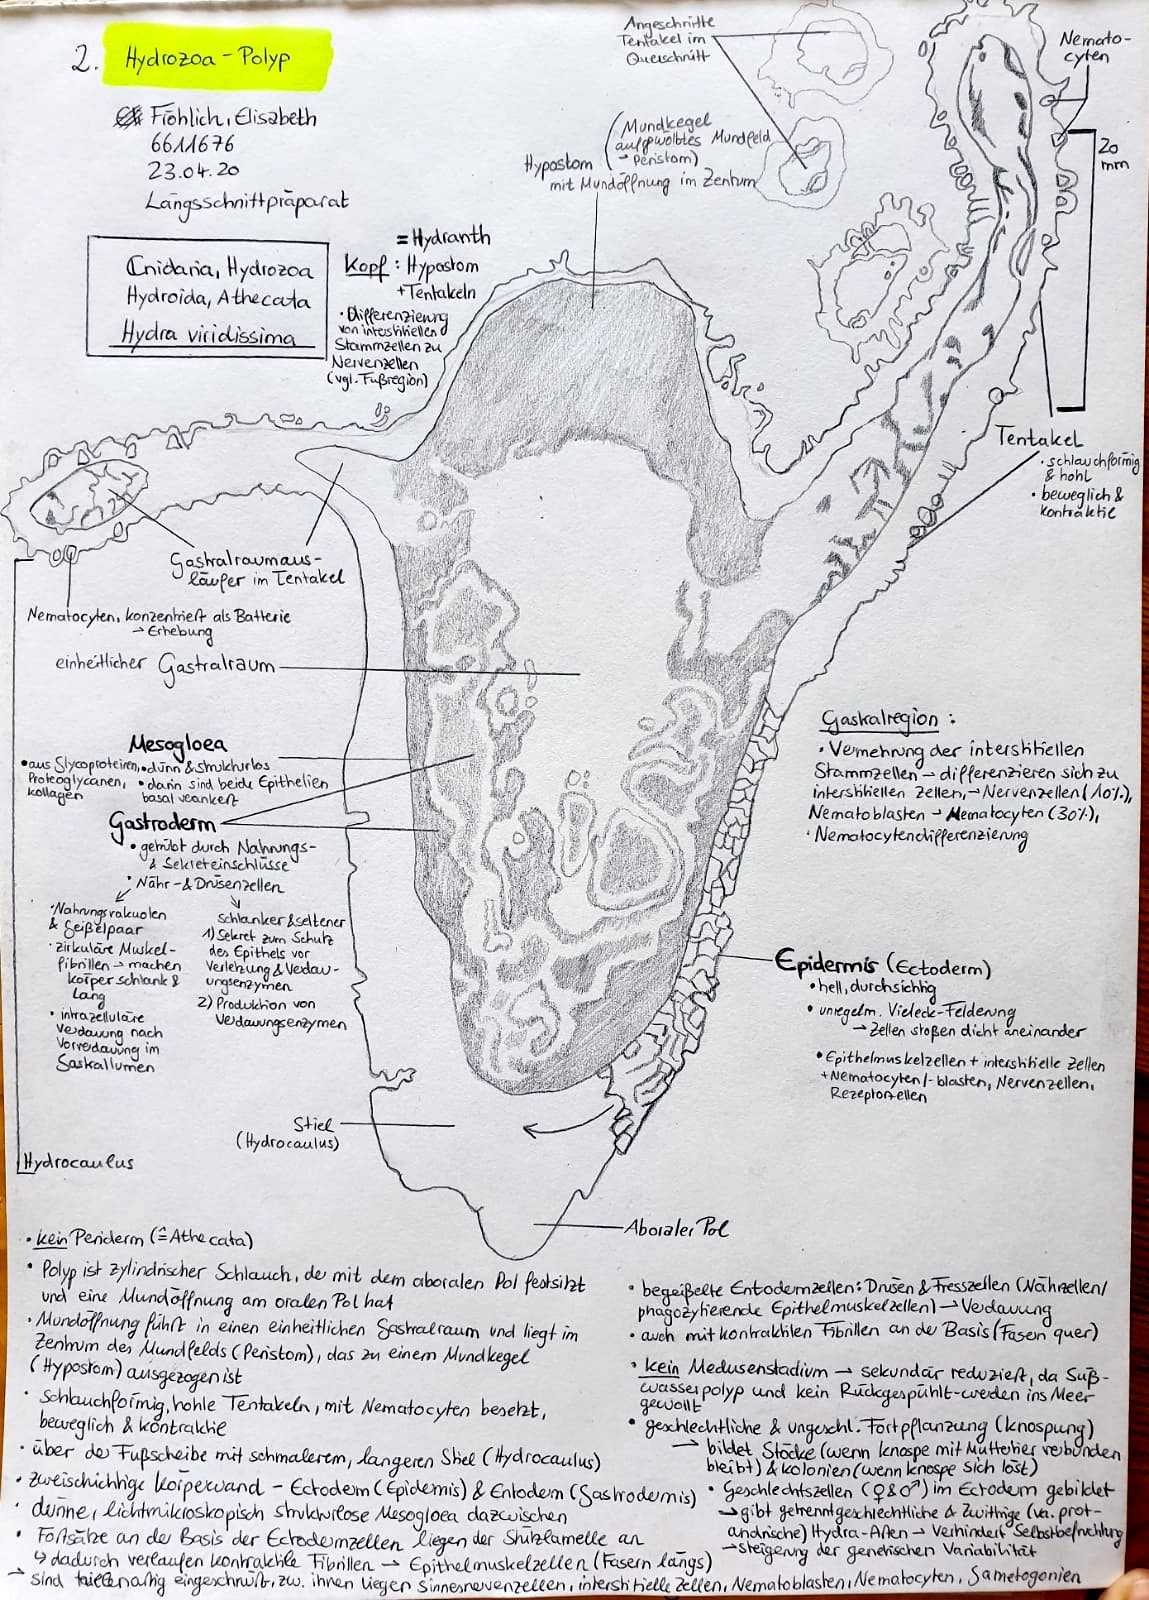 2. Hydrozoa - Polyp
Fröhlich, Elisabeth
6611676
23.04.20
Längsschnittpräparat
Cnidaria, Hydrozoa
Hydroida, Athecata
Hydra viridissima
= Hydranth
Kopf: Hypostom
+ Tentakeln
· Differenzierung
von interstitiellen
Stammzellen zu
Nervenzellen
(vgl. Fußregion)
Angeschnitte
Tentakel im
Querschnitt
Hypostom
(Mundkegel
aufgewölbtes Mundfeld
→ Peristom)
mit Mundöffnung im Zentrum
Nemato-
cyten
20
mm
Tentakel
· schlauchförmig
& hohl
· beweglich &
kontraktil
Gastralraumaus-
läufer im Tentakel
Nematocyten, konzentriert als Batterie
→ Erhebung
einheitlicher Gastralraum
Mesogloea
· aus Glycoproteinen,
Proteoglycanen,
Kollagen
· dünn & strukturlos
· darin sind beide Epithelien
basal verankert
Gastroderm
· getrübt durch Nahrungs-
& Sekreteinschlüsse
· Nähr- & Drüsenzellen
· Nahrungsvakuolen
& Geißelpaar
· zirkuläre Muskel-
fibrillen → machen
Körper schlank &
lang
· intrazelluläre
Verdauung nach
Vorverdauung im
Gastrallumen
schlanker & seltener
1) Sekret zum Schutz
des Epithels vor
Verletzung & Verdau-
ungsenzymen
2) Produktion von
Verdauungsenzymen
Gastralregion:
· Vermehrung der interstitiellen
Stammzellen → differenzieren sich zu
interstitiellen Zellen, → Nervenzellen (10%),
Nematoblasten → Nematocyten (30%),
· Nematocytendifferenzierung
Epidermis (Ectoderm)
· hell, durchsichtig
· unregelm. Vieleck-Felderung
→ Zellen stoßen dicht aneinander
· Epithelmuskelzellen + interstitielle Zellen
+ Nematocyten/-blasten, Nervenzellen,
Rezeptorzellen
Stiel
(Hydrocaulus)
Hydrocaulus
Aboraler Pol
· kein Periderm (≙ Athecata)
· Polyp ist zylindrischer Schlauch, der mit dem aboralen Pol festsitzt
und eine Mundöffnung am oralen Pol hat
· Mundöffnung führt in einen einheitlichen Gastralraum und liegt im
Zentrum des Mundfelds (Peristom), das zu einem Mundkegel
(Hypostom) ausgezogen ist
· schlauchförmig, hohle Tentakeln, mit Nematocyten besetzt,
beweglich & kontraktil
· über der Fußscheibe mit schmalerem, längeren Stiel (Hydrocaulus)
· zweischichtige Körperwand - Ectoderm (Epidermis) & Entoderm (Gastrodermis)
· dünne, lichtmikroskopisch strukturlose Mesogloea dazwischen
· Fortsätze an der Basis der Ectodermzellen liegen der Stützlamelle an
↳ dadurch verlaufen kontraktile Fibrillen → Epithelmuskelzellen (Fasern längs)
→ sind taillenartig eingeschnürt, zw. ihnen liegen Sinnesnervenzellen, interstitielle Zellen, Nematoblasten, Nematocyten, Gametogonien
· begeißelte Entodermzellen: Drüsen & Fresszellen (Nährzellen/
phagozytierende Epithelmuskelzellen) → Verdauung
· auch mit kontraktilen Fibrillen an der Basis (Fasern quer)
· kein Medusenstadium → sekundär reduziert, da Süß-
wasserpolyp und kein Rückgespühlt-werden ins Meer
gewollt
· geschlechtliche & ungeschl. Fortpflanzung (Knospung)
→ bildet Stöcke (wenn Knospe mit Muttertier verbunden
bleibt) & Kolonien (wenn Knospe sich löst)
· Geschlechtszellen (♀&♂) im Ectoderm gebildet
→ gibt getrenntgeschlechtliche & Zwittrige (v.a. prot-
andrische) Hydra-Arten → Verhindert Selbstbefruchtung
→ Steigerung der genetischen Variabilität